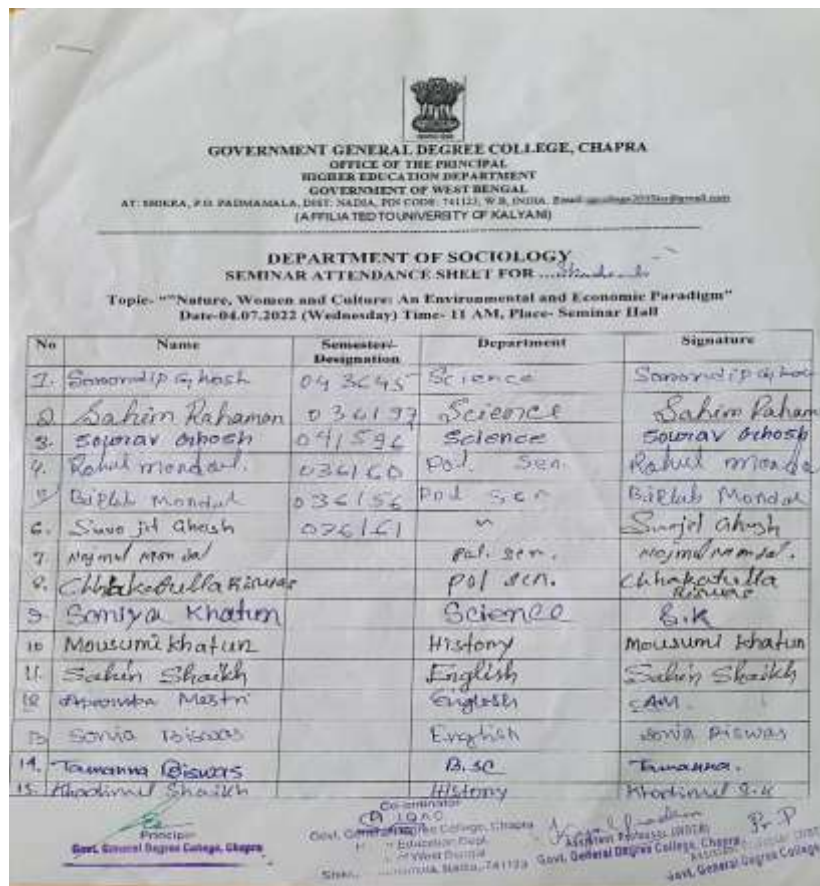 GOVERNMENT GENERAL DEGREE COLLEGE, CHAPRA
OFFICE OF THE PRINCIPAL
HIGHER EDUCATION DEPARTMENT
GOVERNMENT OF WEST BENGAL
AT: SHIKRA, P.O. PADMAMALA, DIST: NADIA, PIN CODE: 741123, W.B, INDIA.
(AFFILIATED TO UNIVERSITY OF KALYANI)
DEPARTMENT OF SOCIOLOGY
SEMINAR ATTENDANCE SHEET FOR ...
Topic- ""Nature, Women and Culture: An Environmental and Economic Paradigm"
Date-04.07.2022 (Wednesday) Time- 11 AM, Place- Seminar Hall
No Name Semester/- Designation Department Signature
1. Somondip Ghosh 043645 Science Somondip Ghosh
2 Sahim Rahaman 036197 Science Sahim Raham
3. Sourav Ghosh 041596 Science Sourav Ghosh
4. Rahul mondal. 036160 Pol. Sen. Rahul monda
5 Biplab Mondal 036156 Pol Sen Biplab Mondal
6. Suvojit Ghosh 036161 " Ghosh
7. Najmul Mondal Pol. sen. Najmul Mondal.
8. Chhakatulla Biswas pol scn. Chhakatulla Biswas
9 Somiya Khatun Science S.K
10 Mousumi Khatun History Mousumi Khatun
11. Sahin Shaikh English Sahin Shaikh
12 Mestri English
13 Sonia Biswas English Sonia Biswas
14. Tamanna Biswas B.sc Tamanna.
15. Shaikh History
Principal
Govt. General Degree College, Chapra
Co-ordinator
IQAC
Govt. General Degree College, Chapra
Education Dept.
West Bengal
Nadia, 741123
Assistant Professor (WBES)
Govt. General Degree College, Chapra
Govt. General Degree College